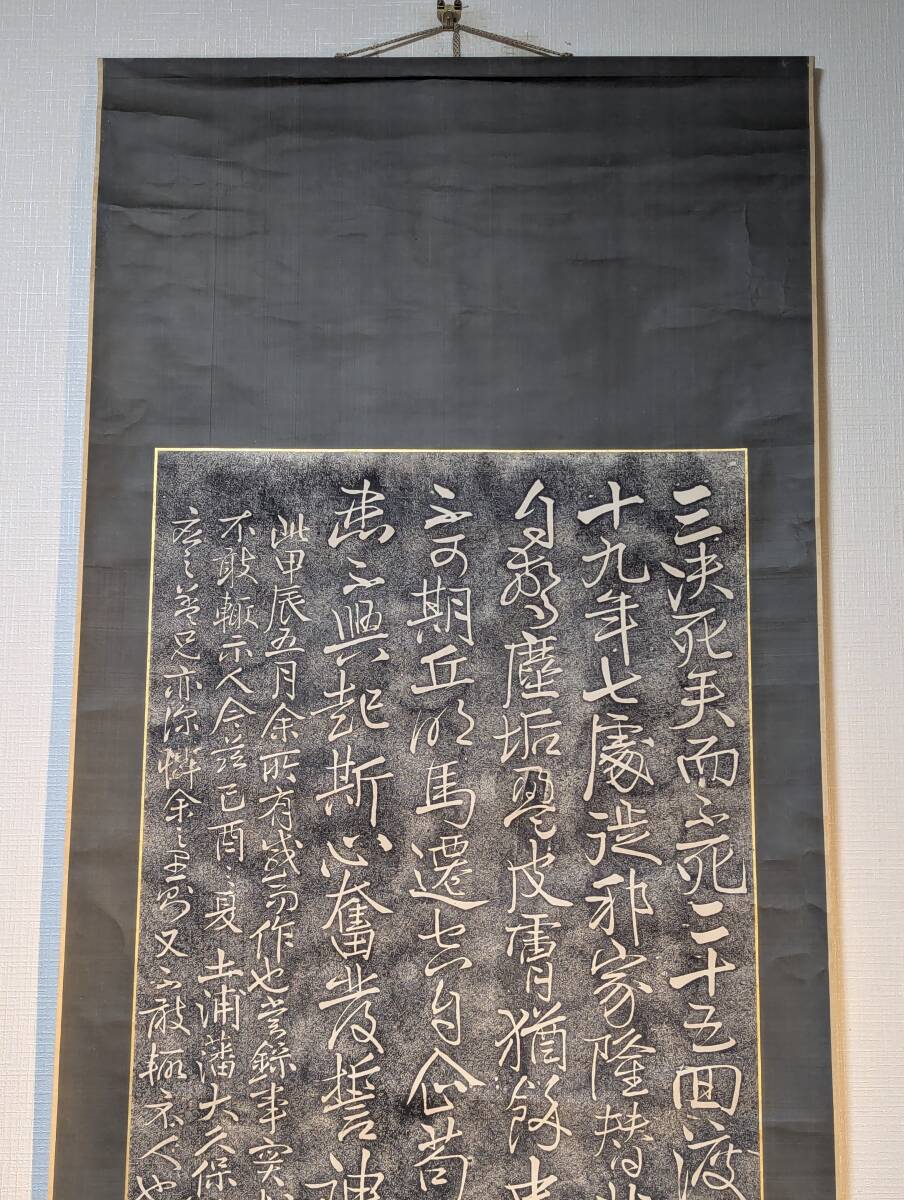 三決死矣而不死二十五回渡
十九年七處徙邦家隆替非
自驚塵垢盈皮膚猶餘忠
不可期丘明馬遷空自企苟
患不興起斯心奮發誓神
此甲辰五月余所有感而作也嘗錄事實
不敢輙示人今茲己酉之夏土浦藩大久保
兄亦深憐余之又不敢輙示人也